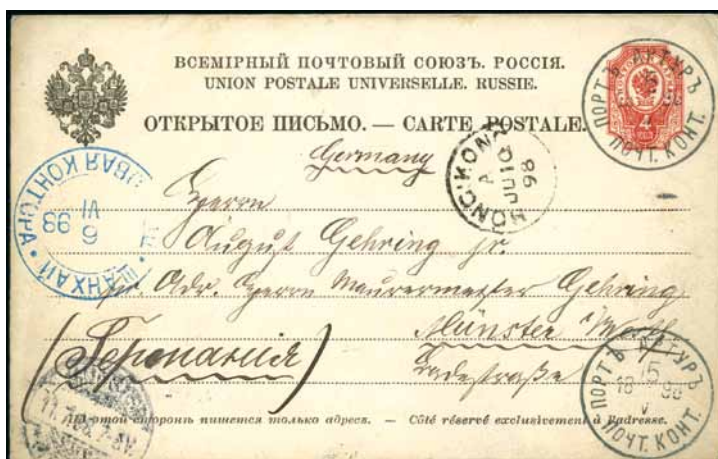 ВСЕМІРНЫЙ ПОЧТОВЫЙ СОЮЗЪ. РОССІЯ.
UNION POSTALE UNIVERSELLE. RUSSIE.
ОТКРЫТОЕ ПИСЬМО. — CARTE POSTALE.
4
ПОРТЪ АРТУРЪ
ПОЧТ. КОНТ.
Germany
HONG KONG
A
JU 10
98
ШАНХАЙ ВАЯ КОНТОРА
6
VI
98
Herrn
August Gehring jr.
pr. Adr. Herrn Maurermeister Gehring
Münster i/Westf
(Германия)
Badestraße
ПОРТЪ АРТУРЪ
15
18 98
V
ПОЧТ. КОНТ.
На этой сторонѣ пишется только адресъ. — Côté réservé exclusivement à l'adresse.